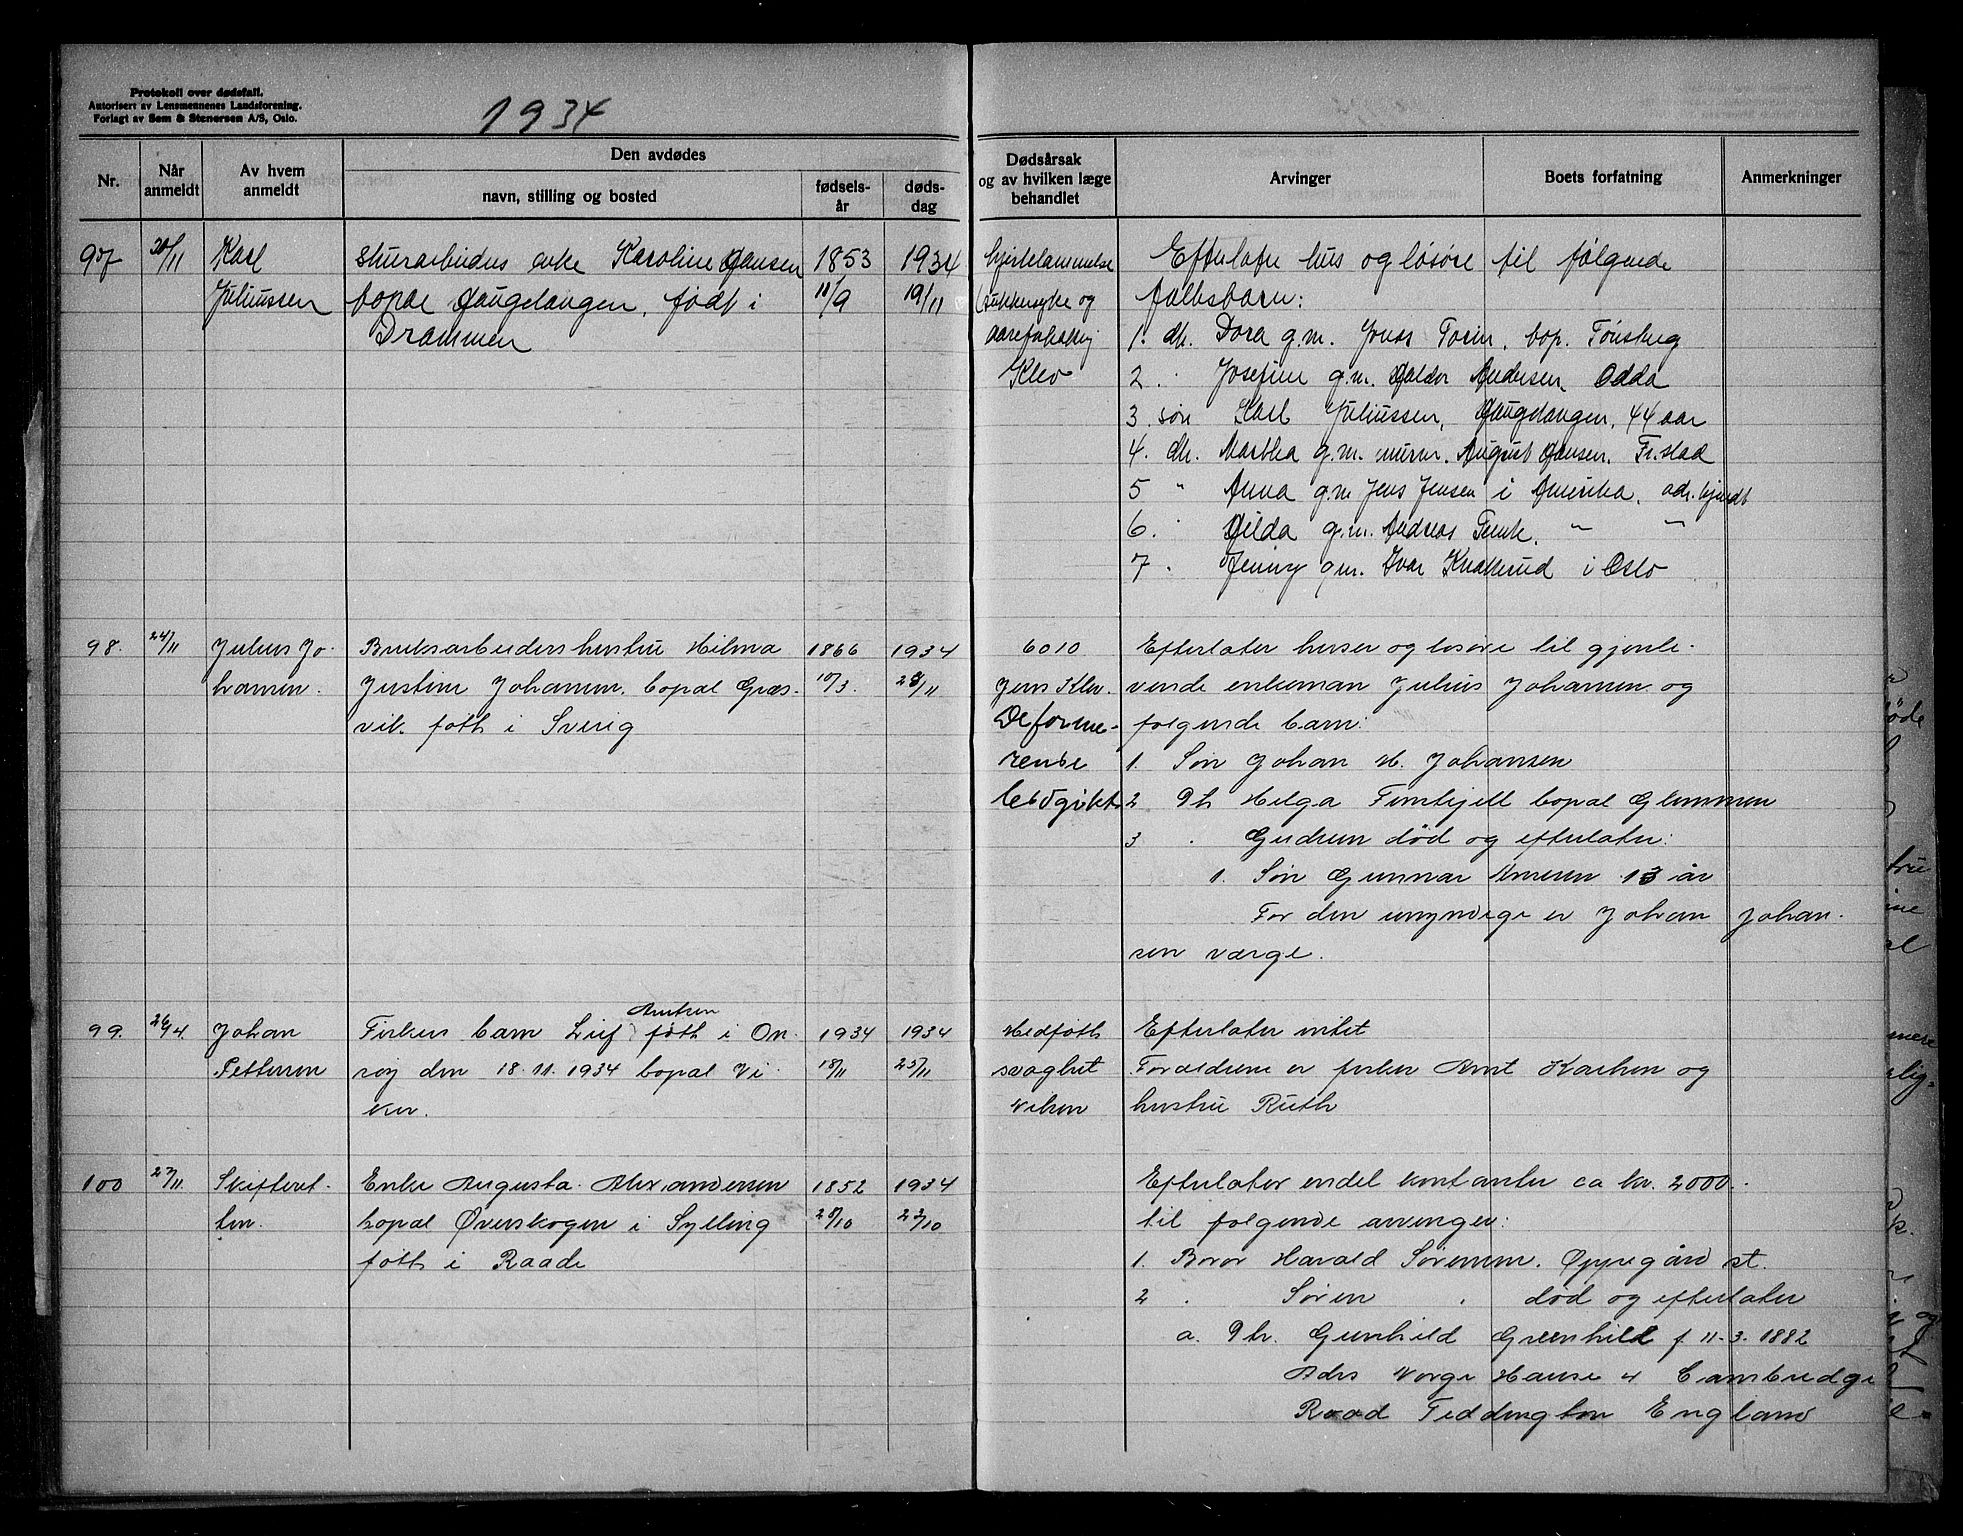 Protokoll over dødsfall.
Autorisert av Lensmennenes Landsforening.
Forlagt av Sem & Stenersen A/S, Oslo.
1934
Nr.
Når anmeldt
Av hvem anmeldt
Den avdødes
navn, stilling og bosted
fødselsår
dødsdag
Dødsårsak og av hvilken læge behandlet
Arvinger
Boets forfatning
Anmerkninger
97 20/11 Karl enke Karoline Hansen 1853 1934
Juliussen bopæl Haugetangen, født i 11/9 19/11
Drammen
hjertelammelse
sukkersyke og
Klev
Efterlater hus og løsøre til følgende
1. dtr. Dora g.m. Jonas bop. Tønsberg
2. " Josefine g.m. Haldor Andersen, Odda
3. søn Karl Juliussen, Haugetangen, 44 aar
4. dtr. Martha g.m. murer August Hansen, Fr.stad
5 " Anna g.m. Jens Jensen i Amerika, adr. ukjendt
6. " Hilda g.m. Andreas " "
7. Jenny g.m. Ivar i Oslo
98. 24/11 Julius Jo- Bruksarbeiders hustru Hilma 1866 1934
hansen. Justine Johansen, bopæl Græs- 10/3. 23/11
vik. føth i Sverig
6010
Jens Klev.
Deforme-
rende
ledgikt
Efterlater huser og løsøre til gjenle-
vende enkeman Julius Johansen og
følgende barn:
1. Søn Johan H. Johansen
2 Dtr Helga bopæl Glemmen
3 " Gudrun død og efterlater:
1. Søn Gunnar 13 år
For den umyndige er Johan Johan-
sen værge.
99. Johan Fiskers barn Leif Arntsen føth i On- 1934 1934
Pettersen søy den 18.11.1934 bopæl Vi- 18/11 25/11
ker.
Medføth
svaghet
Nilsen
Efterlater intet
Foreldrene er fisker Arnt Karlsen og
hustru Ruth
100 27/11 Skifteret- Enke Augusta Alexandersen 1852 1934
ten. bopæl Øverskogen i Sylling 28/10 22/10
føth i Raade
Efterlater endel kontanter ca kr. 2000.-
til følgende arvinger:
1. Broror Harald Sørensen. Oppegård st.
2 " Søren " død og efterlater
a. Dtr. Gunhild Greenhild f. 11-3. 1882
Adrs Norge House 4 Cambridge
Road Teddington England